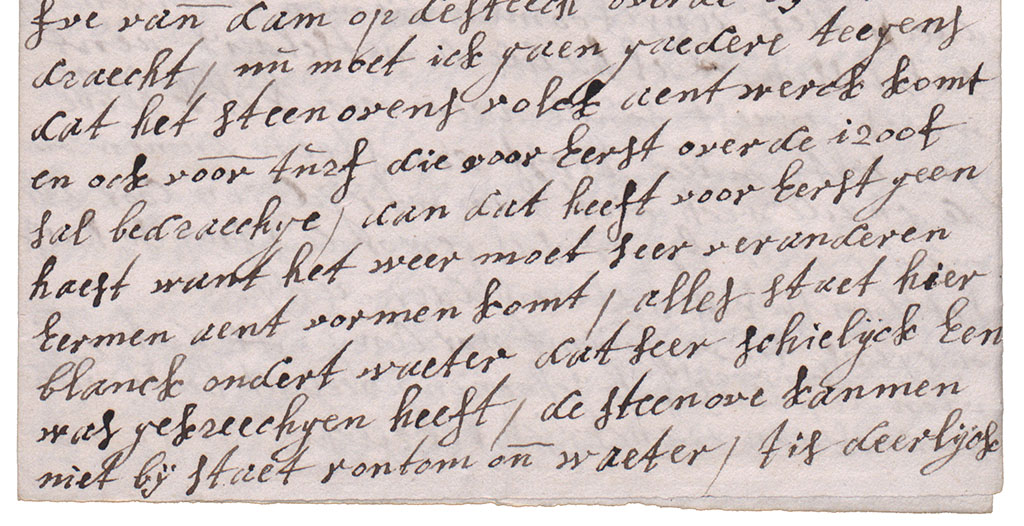 van dam op de steech over de
draecht / nū moet ick gaen gaedere teegens
dat het steenovens volck aent werck komt
en ock voor tūrf die voor eerst over de 1200f
sal bedraechge / dan dat heeft voor eerst geen
haest want het weer moet seer veranderen
eermen aent vormen komt / alles staet hier
blanck ondert waeter dat seer schielÿck een
was gekreechgen heeft / de steenove kanmen
niet bÿ staet rontom oñ waeter / tis deerlÿck